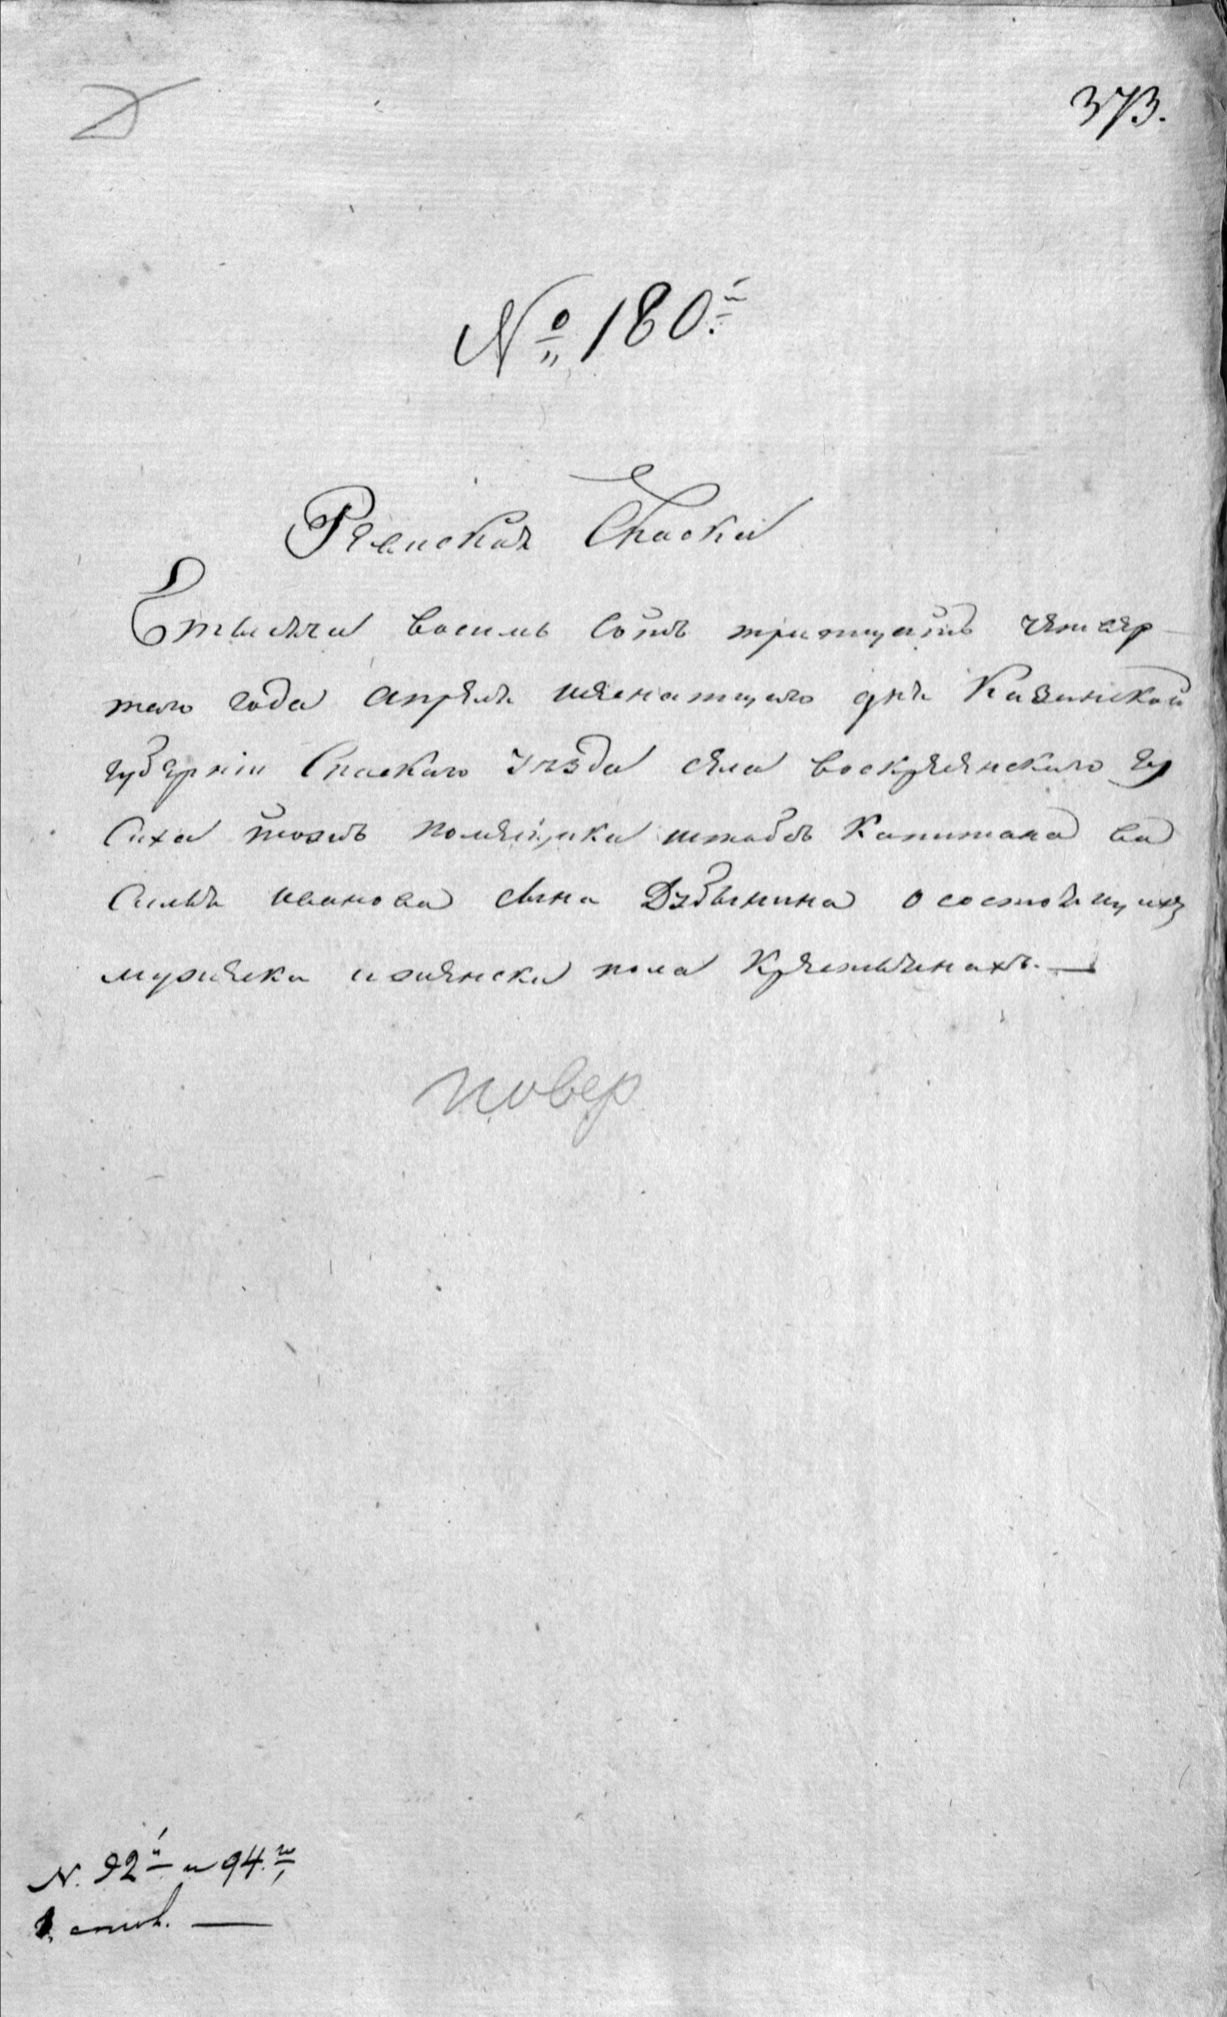 373.
№ 180й
Ревиская Скаска
Етысячи восимь сотъ тритцать четвер
таго года апреля шеснатцаго дня Казанской
губернiи Спаскаго уезда села воскресенскаго гу
сиха тожъ помещика штабъ Капитана ва
силья иванова сына Дубынина о состоящихъ
мужеска и женска пола Крестьянахъ. —
повер
N. 92й и 94й